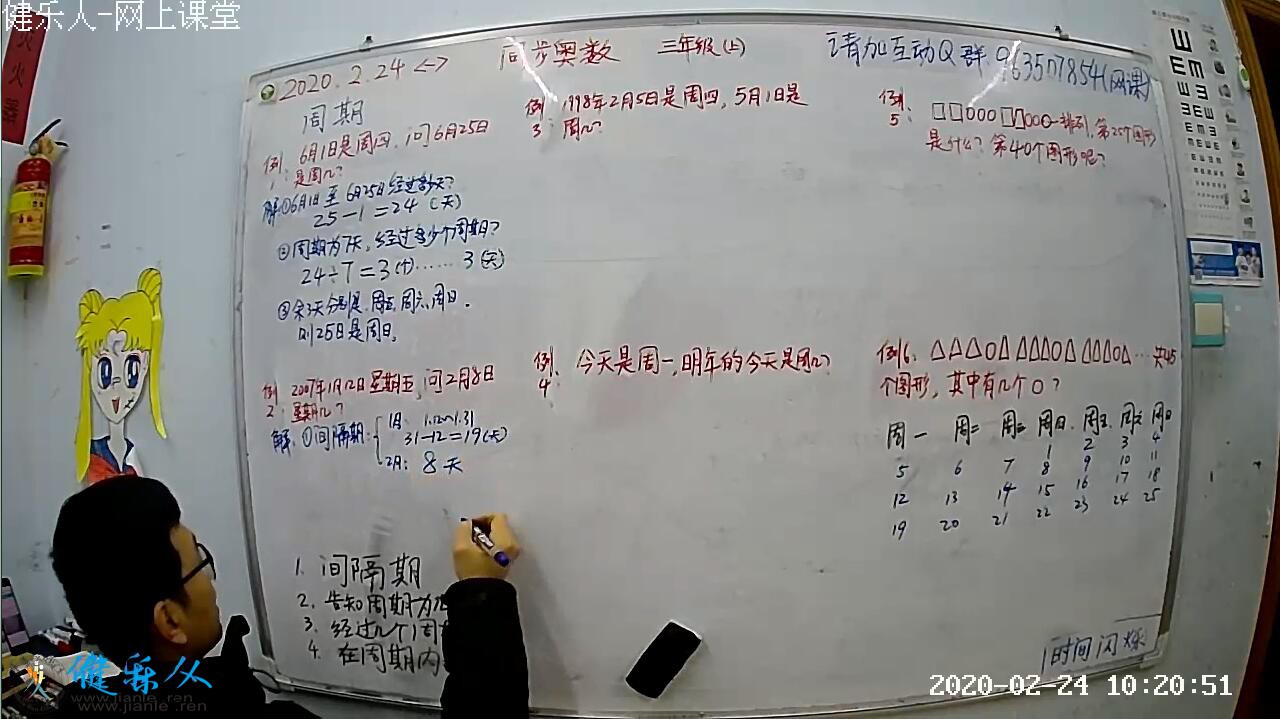 健乐人-网上课堂
2020.2.24 <-> 同步奥数 三年级(上) 请加互动Q群 963507854(网课)
周期
例1: 6月1日是周四,问6月25日
是周几?
解①6月1日至6月25日经过多少天?
25-1=24(天)
②周期为7天,经过多少个周期?
24÷7=3(个)……3(天)
③余3天分别是.周五,周六,周日.
则25日是周日.
例2: 2007年1月12日星期五,问2月8日
星期几?
解:①间隔期:
1月: 1.12~1.31
31-12=19(天)
2月: 8天
1. 间隔期
2. 告知周期为
3. 经过几个周
4. 在周期内
例3: 1998年2月5日是周四,5月1日是
周几?
例4: 今天是周一,明年的今天是周几?
例5: □□○○○□□○○○一排列,第25个图形
是什么?第40个图形呢?
例6: △△△○△△△△○△△△△○△…共45
个图形,其中有几个○?
周一 周二 周三 周四 周五 周六 周日
1 2 3 4
5 6 7 8 9 10 11
12 13 14 15 16 17 18
19 20 21 22 23 24 25
时间闪烁
健乐从
www.jianle.ren
2020-02-24 10:20:51